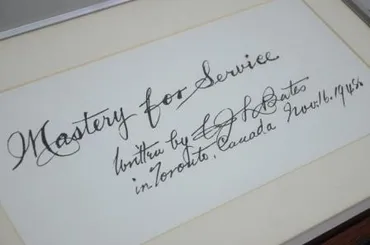 Mastery for Service
Written by C J L Bates
in Toronto, Canada Nov. 16.